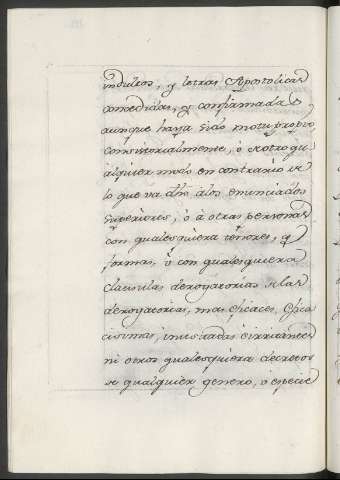 indultos, y letras Apostolicas
concedidas, y confirmadas,
aunque haya sido motu proprio,
consistorialmente, ó de otro qu
alquier modo en contrario de
lo que va dho alos enunciados
superiores, ó á otras personas
con qualesquiera tenores, y
formas, ó con qualesquiera
clausulas derogatorias de las
derogatorias, mas eficaces, efica
cisimas, inusitadas é irritantes
ni otros qualesquiera decretos
de qualquier genero, ó especie